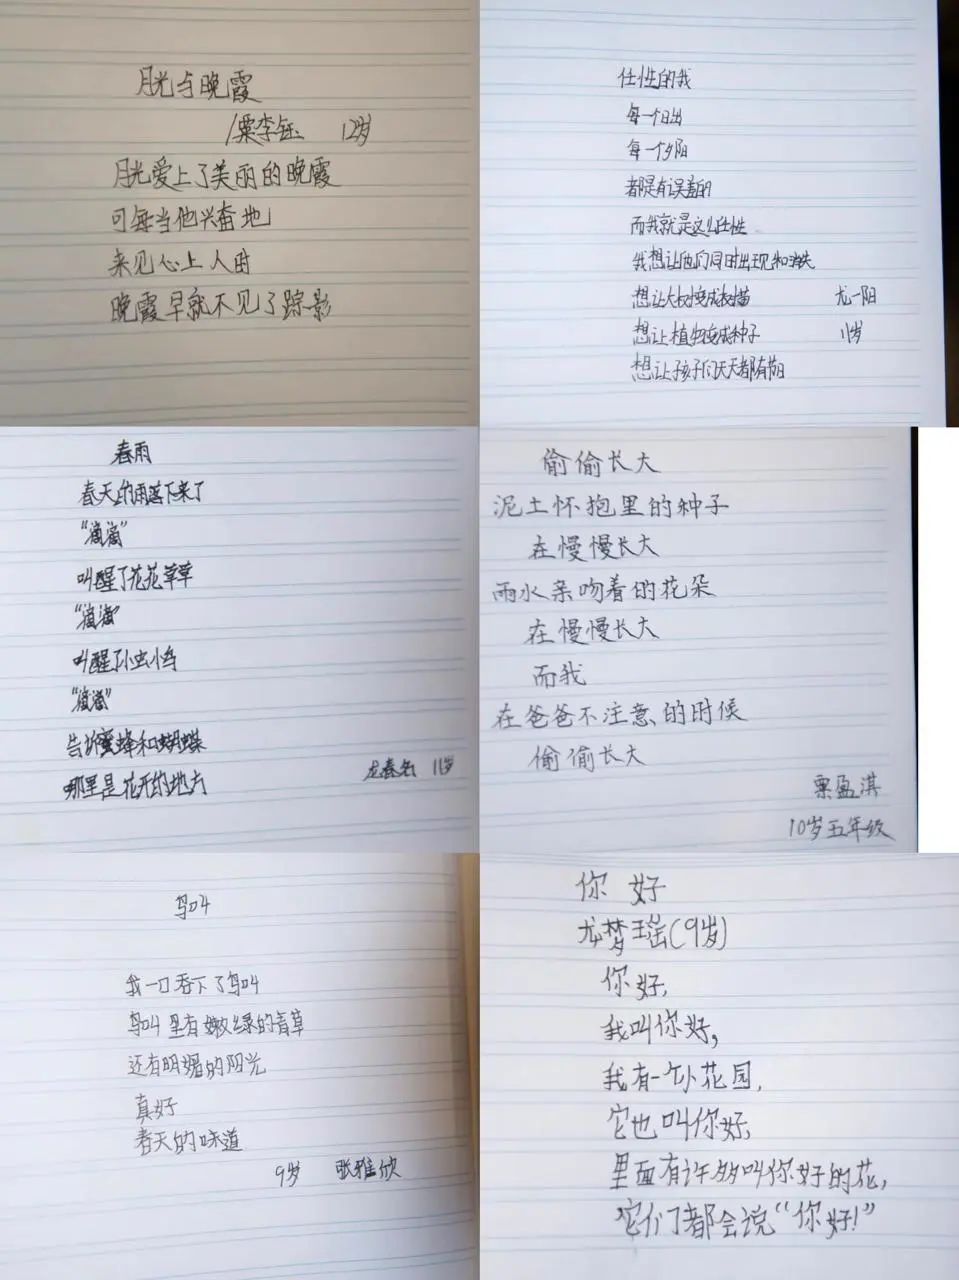 月光与晚霞
/粟李钰 12岁
月光爱上了美丽的晚霞
可每当他兴奋地
来见心上人时
晚霞早就不见了踪影
任性的我
每一个日出
每一个夕阳
都是有误差的
而我就是这么任性
我想让他们同时出现和消失
想让大树变成树苗
尤一阳
想让植物变成种子
11岁
想让孩子们天天都有节日
春雨
春天的雨落下来了
“滴滴”
叫醒了花花草草
“滴滴”
叫醒了小虫小鸟
“滴滴”
告诉蜜蜂和蝴蝶
哪里是花开的地方
龙春 11岁
偷偷长大
泥土怀抱里的种子
在慢慢长大
雨水亲吻着的花朵
在慢慢长大
而我
在爸爸不注意的时候
偷偷长大
粟盈淇
10岁五年级
鸟叫
我一口吞下了鸟叫
鸟叫里有嫩绿的青草
还有明媚的阳光
真好
春天的味道
9岁 张雅欣
你好
龙梦瑶(9岁)
你好,
我叫你好,
我有一个小花园,
它也叫你好,
里面有许多叫你好的花,
它们都会说“你好!”